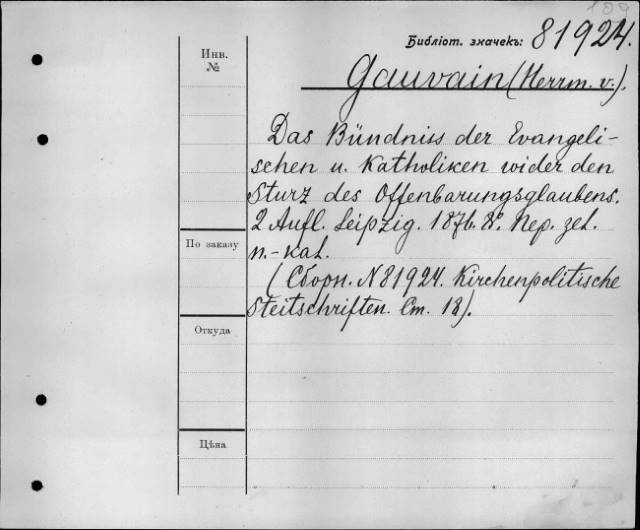 109
Библіот. значекъ: 81924.
Инв.
№
Gauvain (Herrm. v.).
Das Bündniss der Evangeli-
schen u. Katholiken wider den
Sturz des Offenbarungsglaubens.
2 Aufl. Leipzig. 1876. 8º. Пер. зел.
п.-кал.
По заказу
(Сборн. N 81924. Kirchenpolitische
Steitschriften. Ст. 18).
Откуда
Цѣна